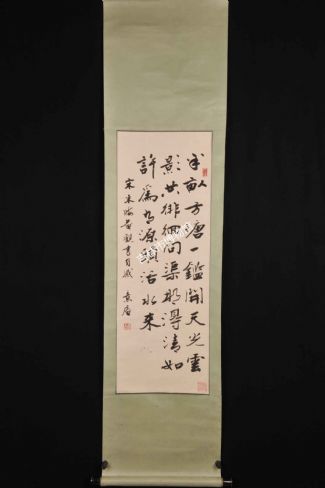 半畝方塘一鑑開天光雲
影共徘徊問渠那得清如
許為有源頭活水來
宋朱晦菴觀書有感